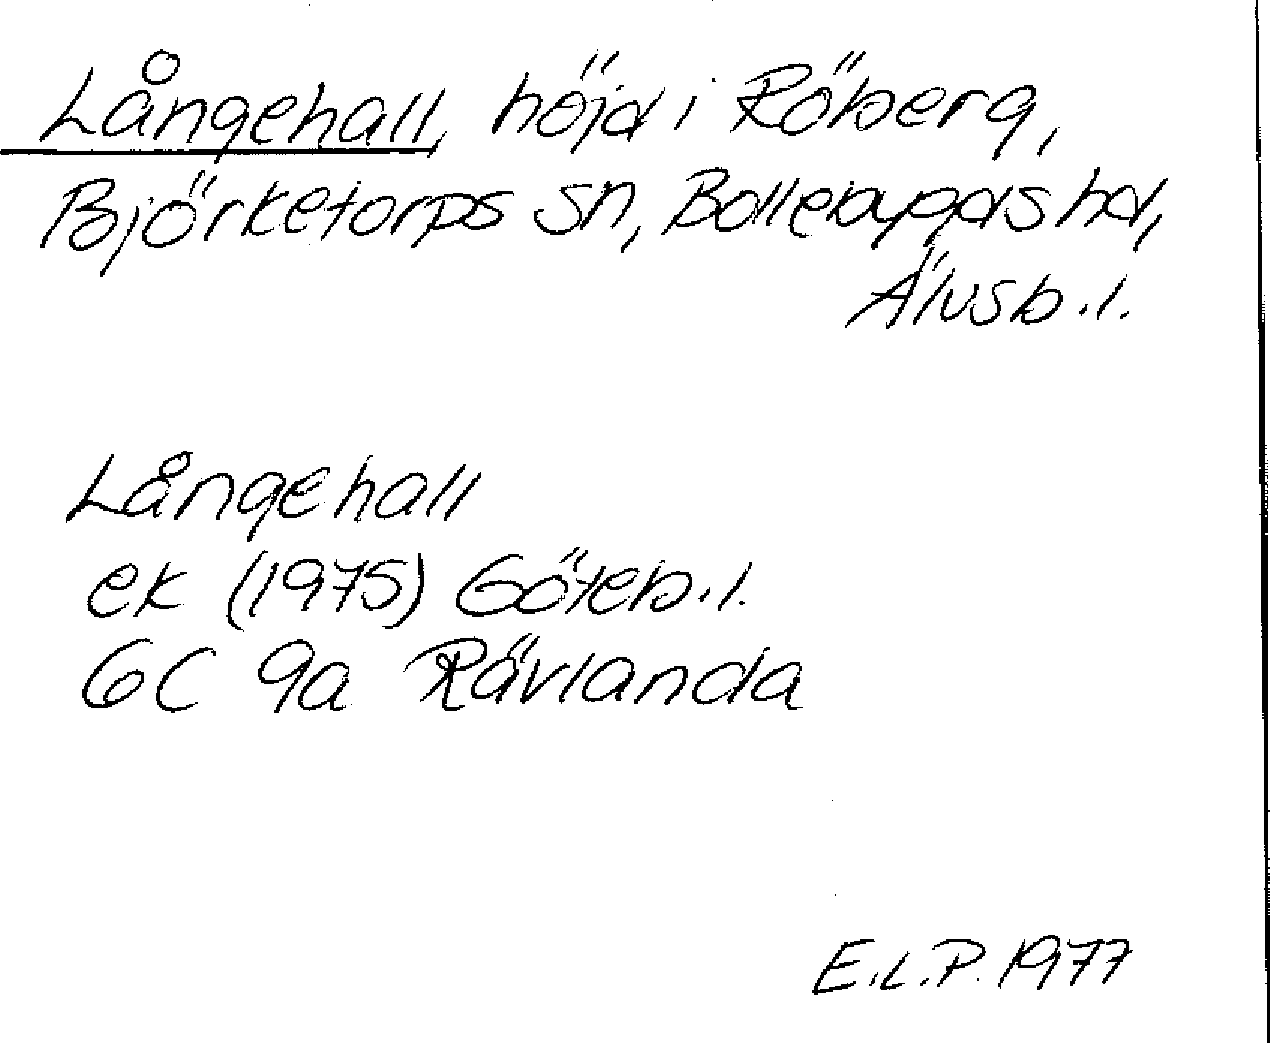 Långehall, höjd i Röberg,
Björketorps sn, Bollebygds hd,
Älvsb.l.
Långehall
ek (1975) Göteb.l.
6C 9a Rävlanda
E.L.P. 1977